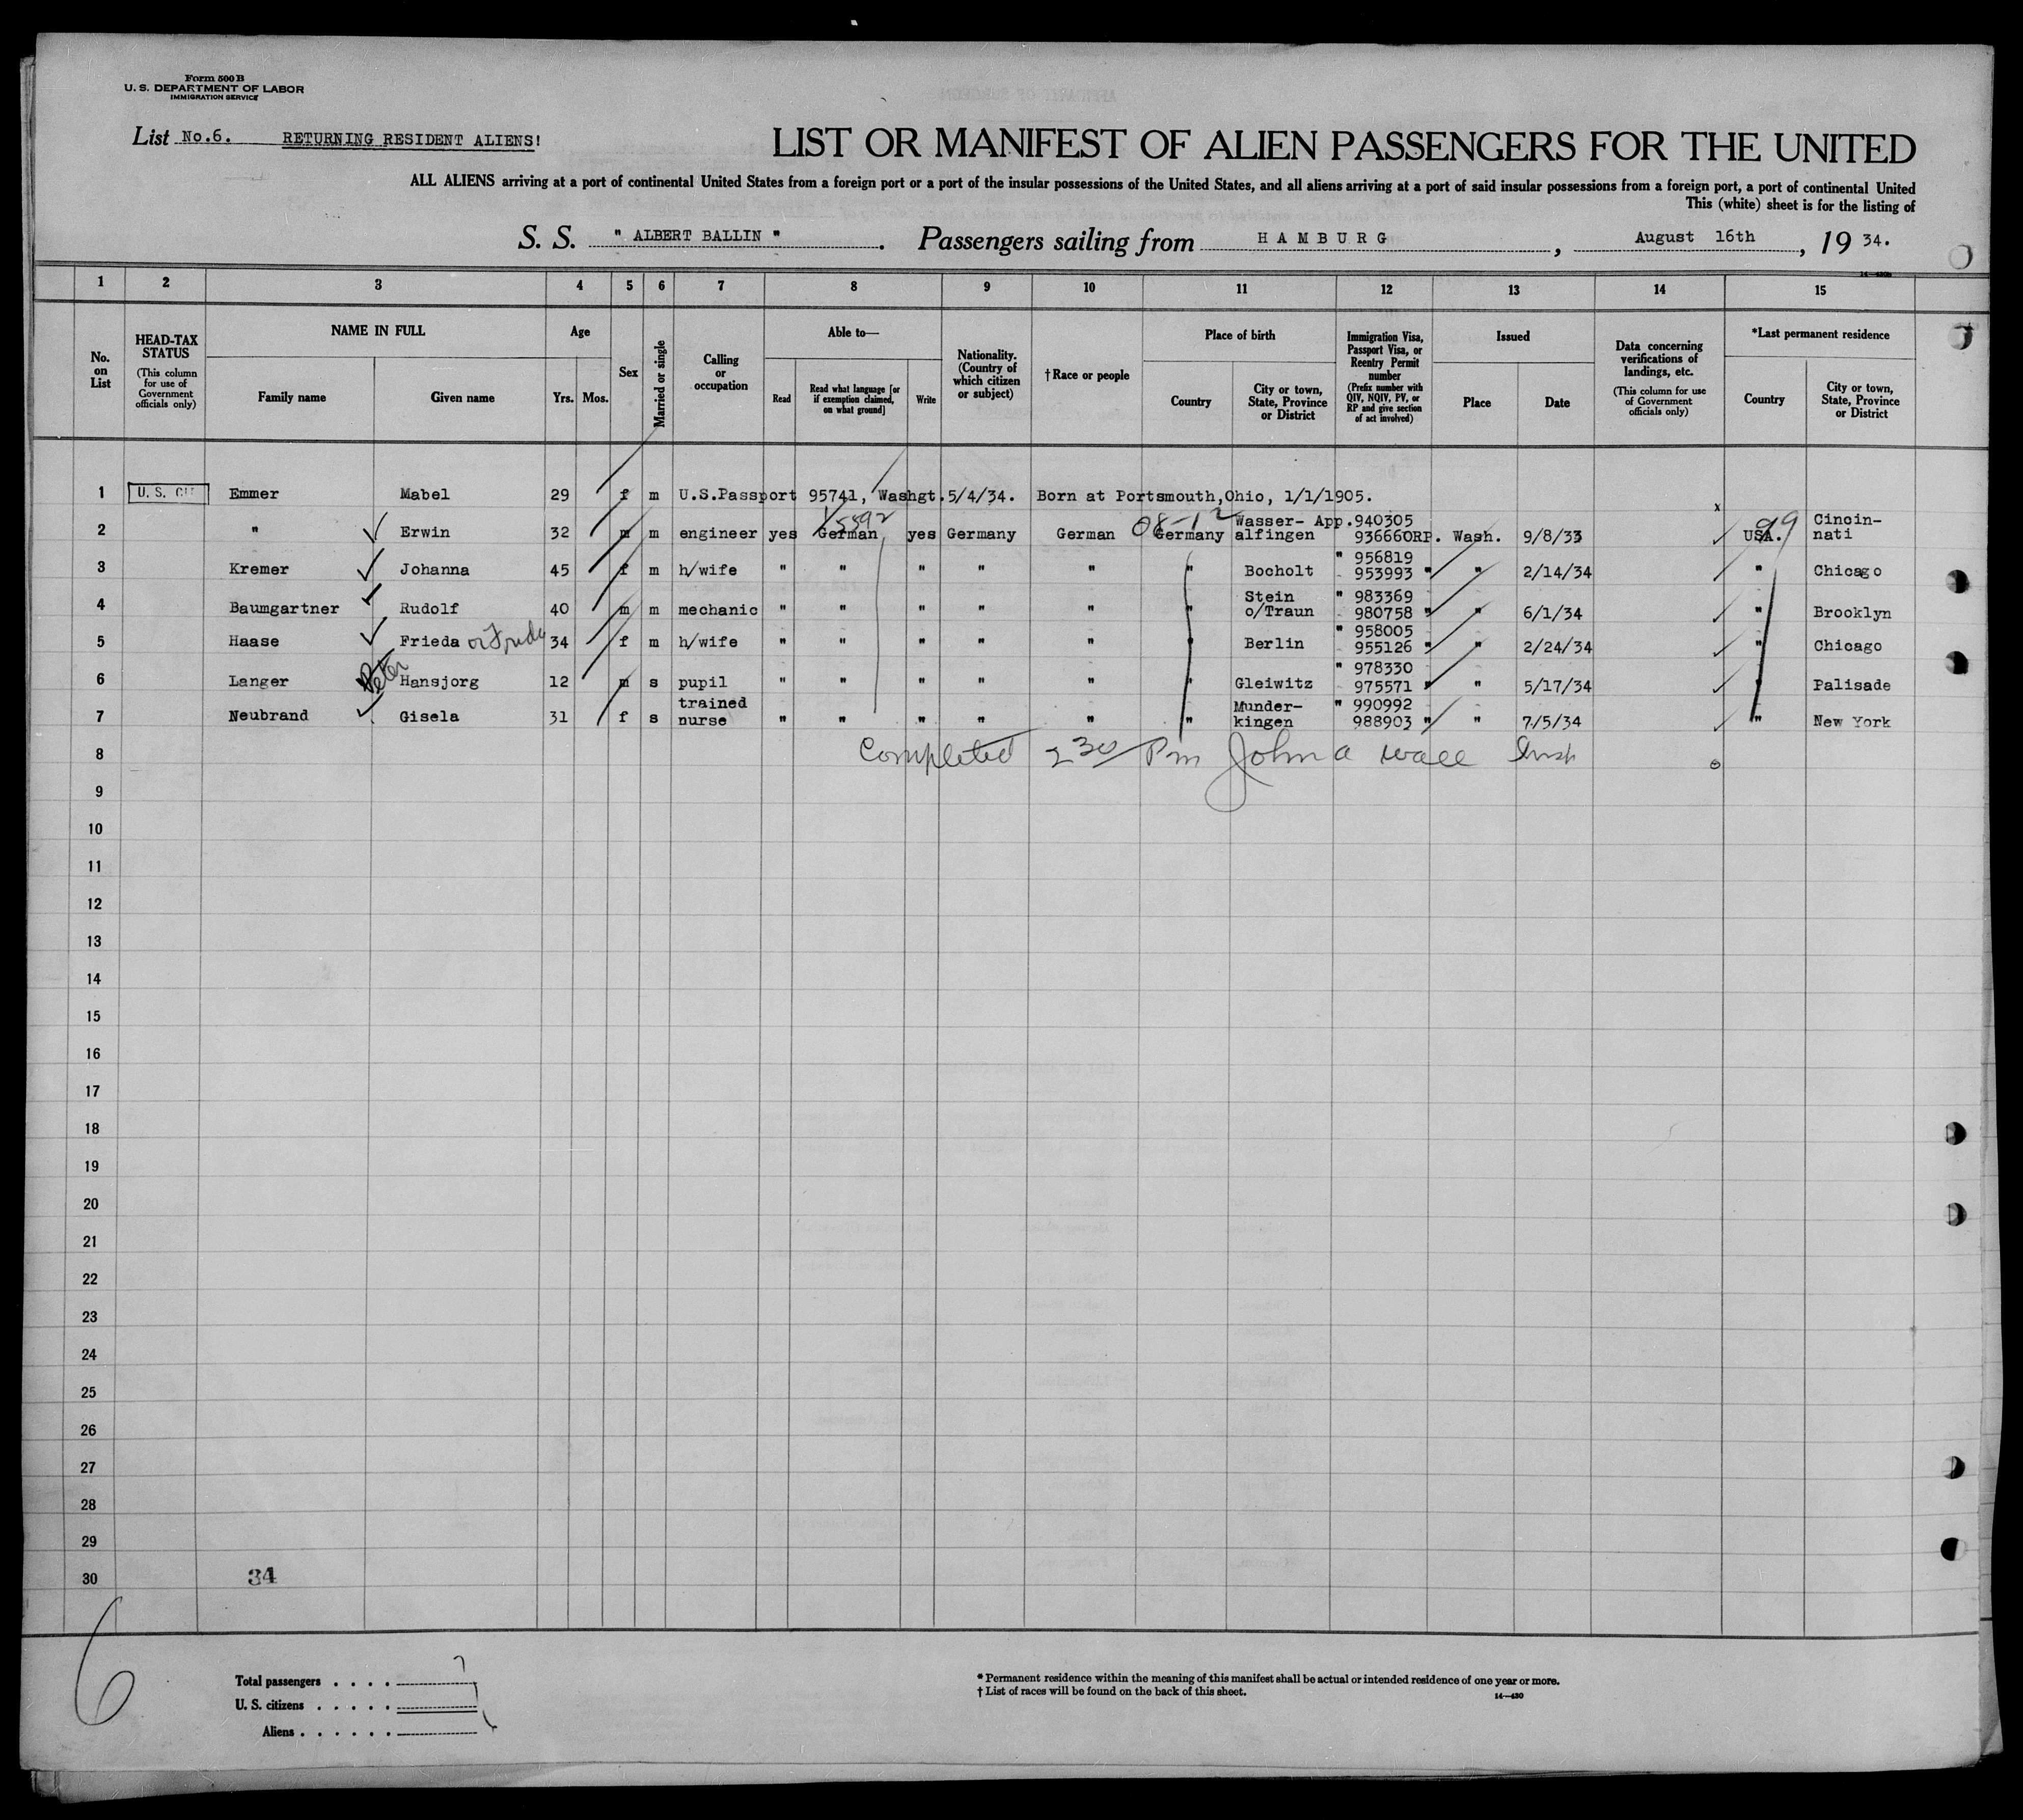 Form 500 B
U. S. DEPARTMENT OF LABOR
IMMIGRATION SERVICE
List No.6. RETURNING RESIDENT ALIENS!
LIST OR MANIFEST OF ALIEN PASSENGERS FOR THE UNITED
ALL ALIENS arriving at a port of continental United States from a foreign port or a port of the insular possessions of the United States, and all aliens arriving at a port of said insular possessions from a foreign port, a port of continental United
This (white) sheet is for the listing of
S. S. " ALBERT BALLIN ". Passengers sailing from HAMBURG, August 16th, 19 34.
14—430b
1 2 3 4 5 6 7 8 9 10 11 12 13 14 15
No. on List
HEAD-TAX STATUS
(This column for use of Government officials only)
NAME IN FULL
Family name
Given name
Age
Yrs. Mos.
Sex
Married or single
Calling or occupation
Able to—
Read
Read what language [or if exemption claimed, on what ground]
Write
Nationality. (Country of which citizen or subject)
† Race or people
Place of birth
Country
City or town, State, Province or District
Immigration Visa, Passport Visa, or Reentry Permit number
(Prefix number with QIV, NQIV, PV, or RP and give section of act involved)
Issued
Place
Date
Data concerning verifications of landings, etc.
(This column for use of Government officials only)
*Last permanent residence
Country
City or town, State, Province or District
1 U. S. CIT Emmer Mabel 29 f m U.S.Passport 95741, Washgt.5/4/34. Born at Portsmouth,Ohio, 1/1/1905.
x
15592 08-12 99
2 " Erwin 32 m m engineer yes German yes Germany German Germany Wasser-alfingen App.940305 936660RP. Wash. 9/8/33 USA. Cincin-nati
3 Kremer Johanna 45 f m h/wife " " " " " " Bocholt " 956819 953993 " " 2/14/34 " Chicago
4 Baumgartner Rudolf 40 m m mechanic " " " " " " Stein o/Traun " 983369 980758 " " 6/1/34 " Brooklyn
5 Haase Frieda or Frida 34 f m h/wife " " " " " " Berlin " 958005 955126 " " 2/24/34 " Chicago
6 Langer Peter Hansjorg 12 m s pupil " " " " " " Gleiwitz " 978330 975571 " " 5/17/34 " Palisade
7 Neubrand Gisela 31 f s trained nurse " " " " " " Munder-kingen " 990992 988903 " " 7/5/34 " New York
8 Completed 2 30 Pm John A Wall Insp
9
10
11
12
13
14
15
16
17
18
19
20
21
22
23
24
25
26
27
28
29
30 34
6
Total passengers . . . . 7
U. S. citizens . . . . .
Aliens . . . . . .
* Permanent residence within the meaning of this manifest shall be actual or intended residence of one year or more.
† List of races will be found on the back of this sheet.
14—430